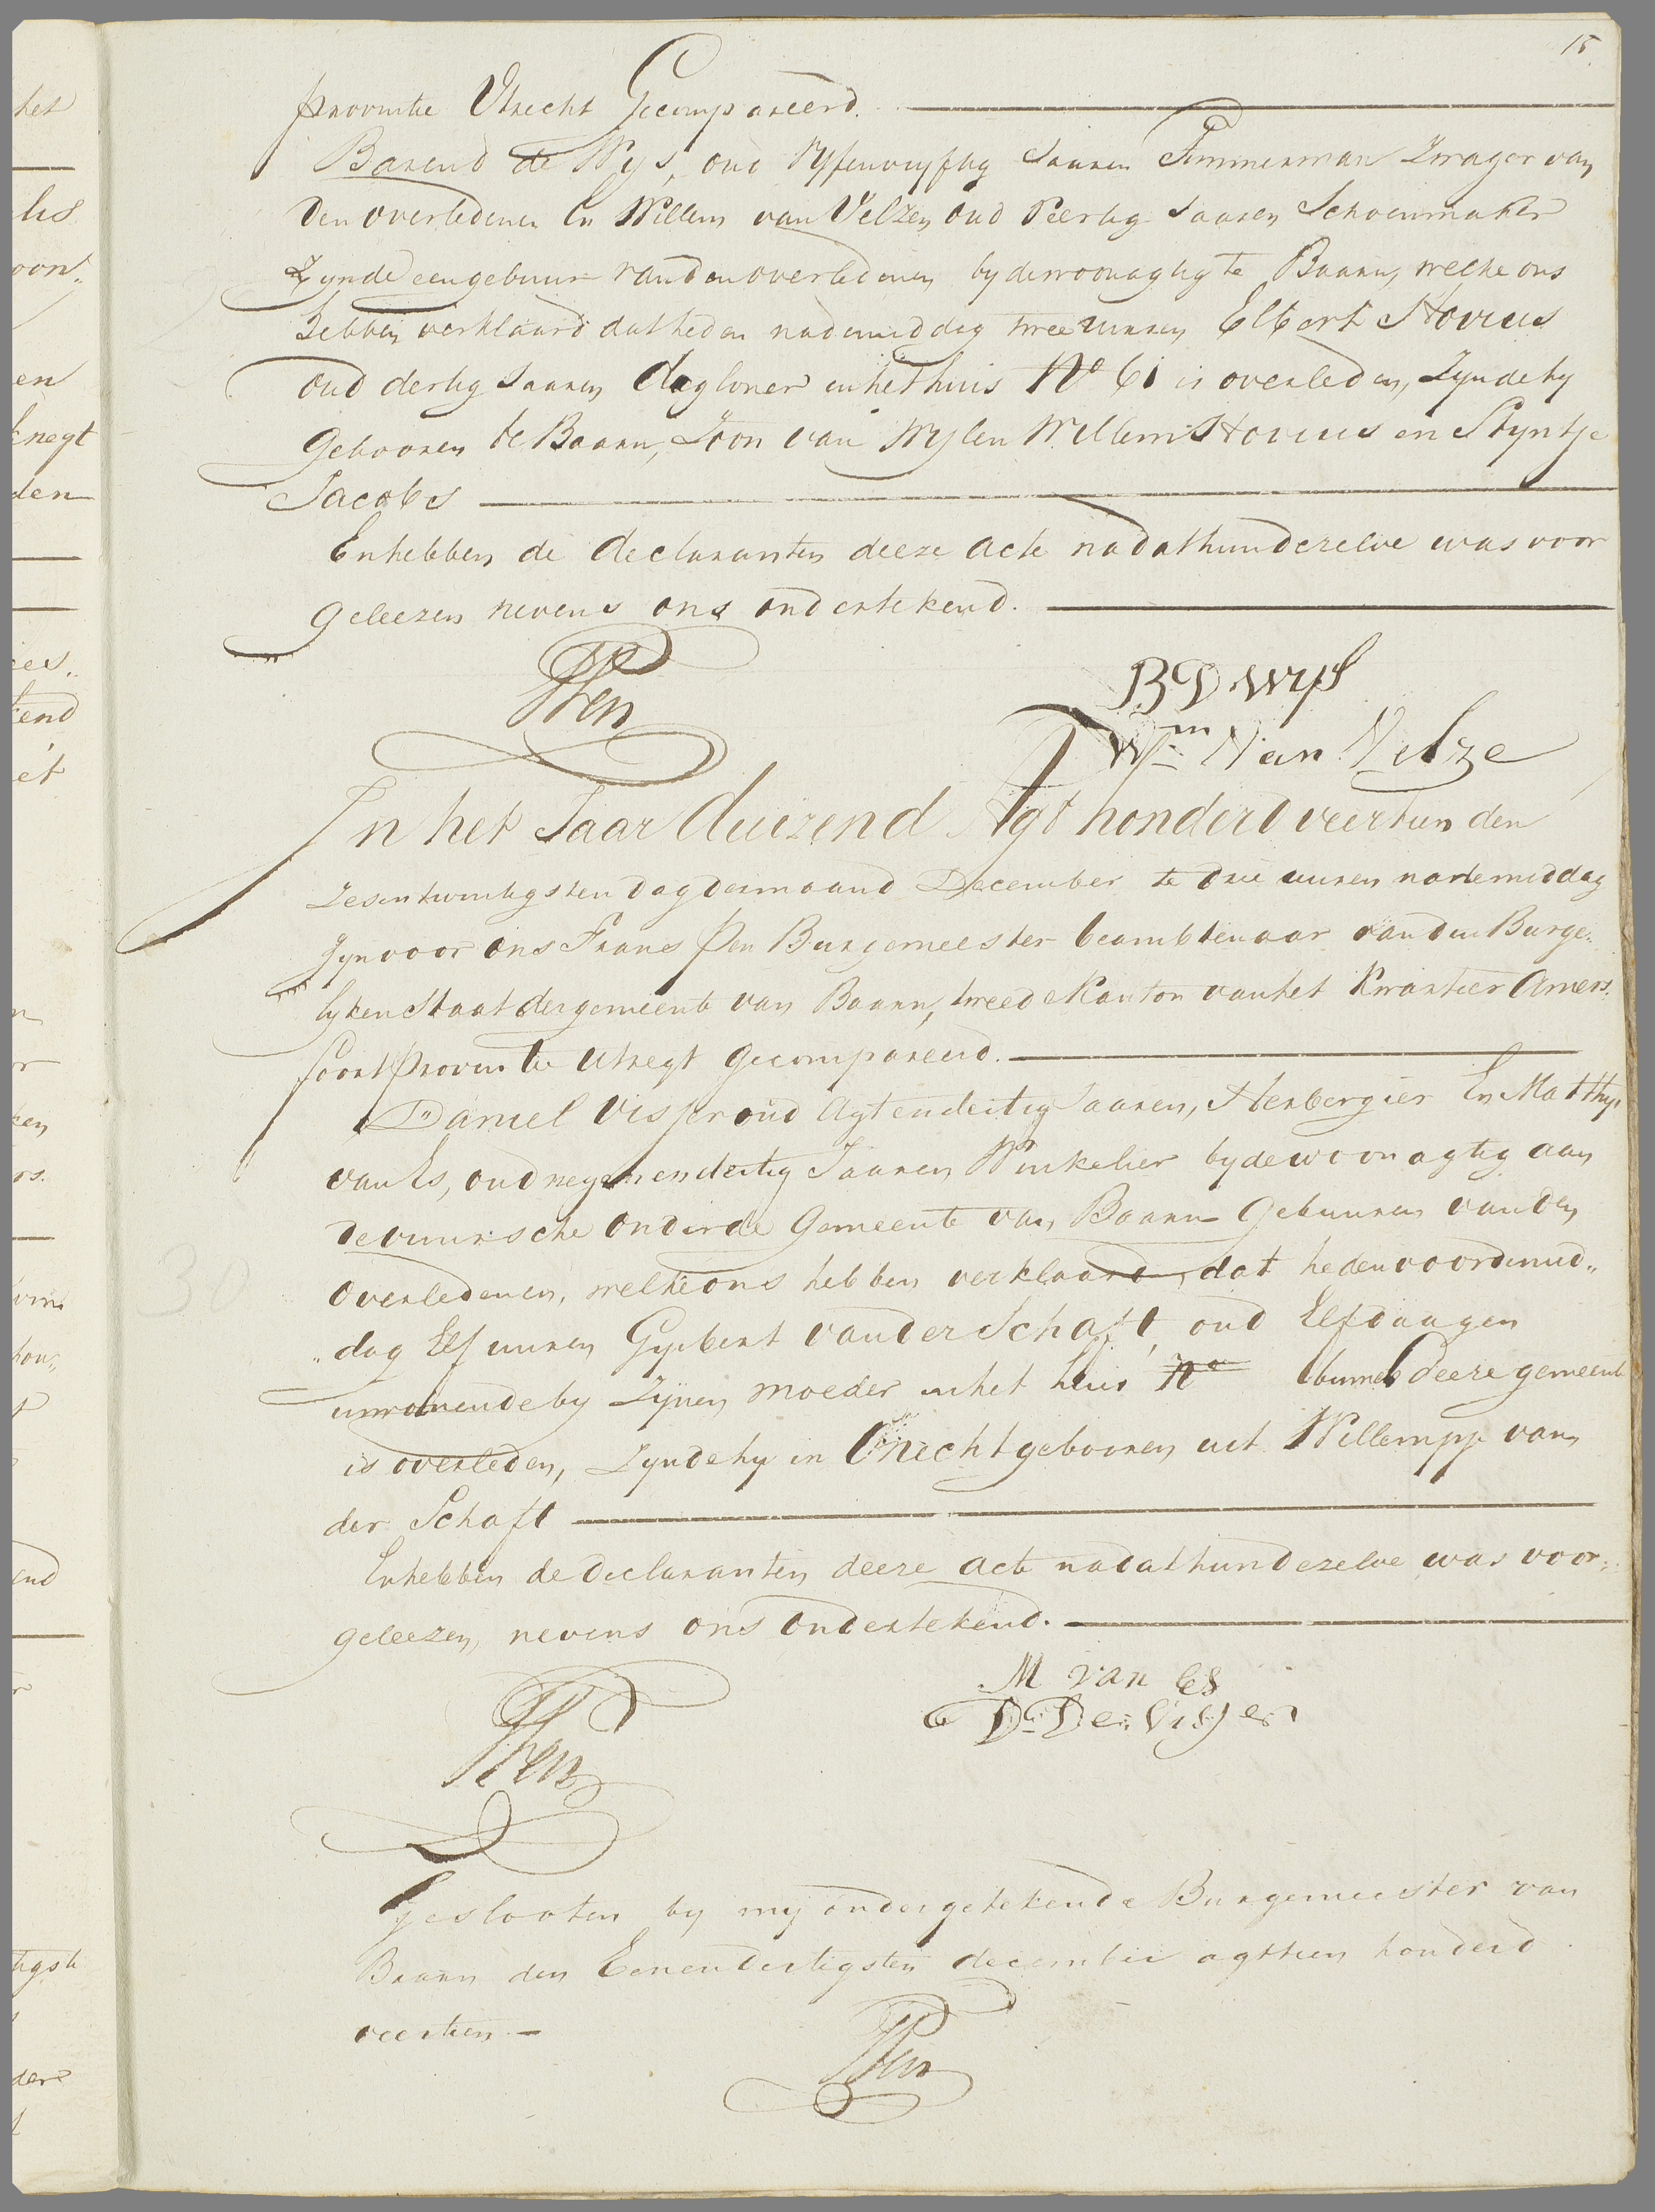 15.
provintie Utrecht Gecompareerd.
Barend de Wys, oud Vyfenvyftig Jaaren Timmerman Zwager van
den overledenen En Willem van Velzen oud Veertig Jaaren Schoenmaker
Zynde een gebuur van den overledenen byde woonagtig te Baarn, welke ons
hebben verklaard dat heden nademiddag twee uuren Elbert Hovius
oud dertig Jaaren dagloner in het huis No 61 is overleden, Zynde hy
Gebooren te Baarn, Zoon van Wylen Willem Hovius en Styntje
Jacobs
En hebben de declaranten deeze acte nadat hun dezelve was voor
geleezen nevens ons ondertekend.
FPen
BD Wys
Wm Van Velze
In het Jaar duizend Agt honderd veertien den
Zesentwintigsten dag der maand December te drie uuren nademiddag
Zyn voor ons Frans Pen Burgemeester beambtenaar van den Burge„
lyken Staat der gemeente van Baarn, tweede Kanton van het Kwartier Amers„
foort provintie Utregt gecompareerd.
Daniel Visser oud Agtendertig Jaaren, Herbergier En Matthys
van Es, oud negenendertig Jaaren Winkelier byde woonagtig aan
de vuursche onder de Gemeente van Baarn Gebuuren van den
Overledenen, welke ons hebben verklaard, dat heden voordemid„
„dag Elf uuren Gysbert van der Schaft, oud Elf daagen
inwonende by Zynen moeder in het huis No binnen deeze gemeente
is overleden, Zynde hy in Onecht gebooren uit Willempje van
der Schaft
En hebben de declaranten deeze acte nadat hun dezelve was voor„
geleezen, nevens ons ondertekend.
M van Es
D De Visser
FPen
Geslooten by my ondergetekende Burgemeester van
Baarn den Eenendertigsten december agttien honderd
veertien.
FPen
30